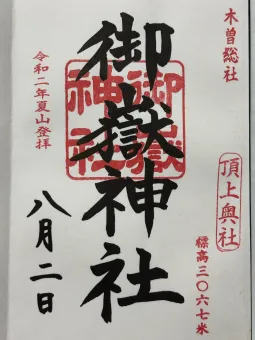 木曽総社
頂上奥社
標高三〇六七米
御嶽神社
御嶽神社
令和二年夏山登拝
八月二日